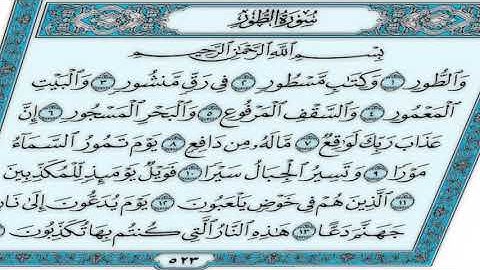 سُورَةُ الطُّورِ
بِسْمِ اللَّهِ الرَّحْمَٰنِ الرَّحِيمِ
وَالطُّورِ ١ وَكِتَابٍ مَّسْطُورٍ ٢ فِي رَقٍّ مَّنشُورٍ ٣ وَالْبَيْتِ
الْمَعْمُورِ ٤ وَالسَّقْفِ الْمَرْفُوعِ ٥ وَالْبَحْرِ الْمَسْجُورِ ٦ إِنَّ
عَذَابَ رَبِّكَ لَوَاقِعٌ ٧ مَّا لَهُ مِن دَافِعٍ ٨ يَوْمَ تَمُورُ السَّمَاءُ
مَوْرًا ٩ وَتَسِيرُ الْجِبَالُ سَيْرًا ١٠ فَوَيْلٌ يَوْمَئِذٍ لِّلْمُكَذِّبِينَ
١١ الَّذِينَ هُمْ فِي خَوْضٍ يَلْعَبُونَ ١٢ يَوْمَ يُدَعُّونَ إِلَىٰ نَارِ
جَهَنَّمَ دَعًّا ١٣ هَٰذِهِ النَّارُ الَّتِي كُنتُم بِهَا تُكَذِّبُونَ
٥٢٣